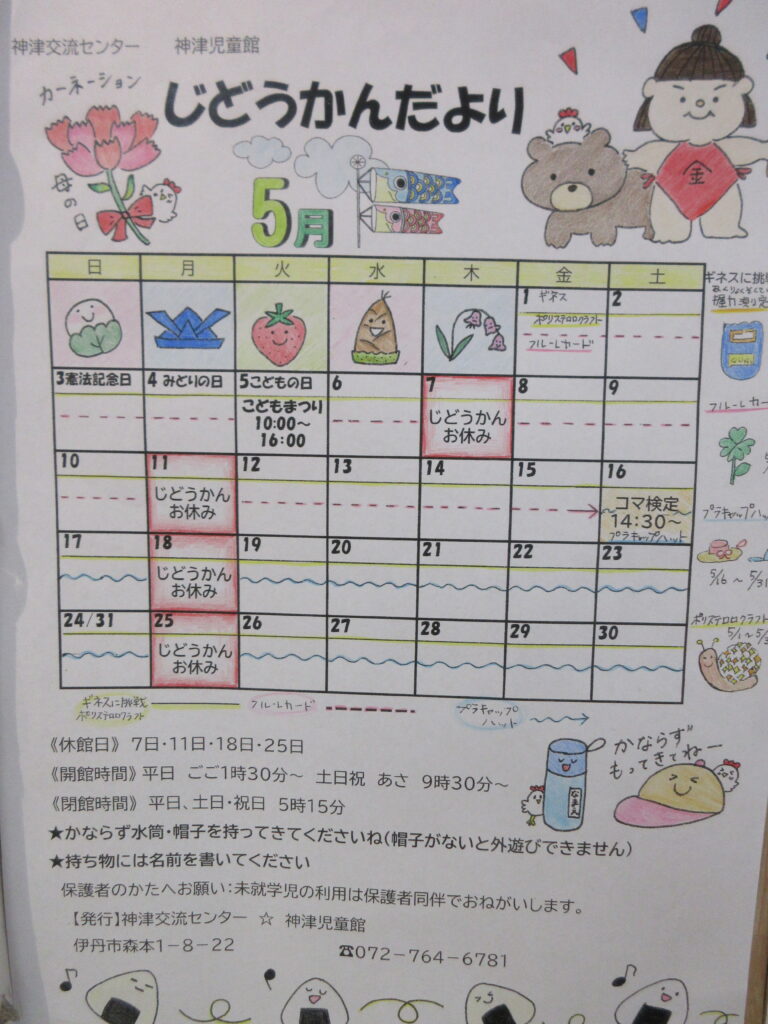 神津交流センター　　神津児童館
カーネーション
母の日
じどうかんだより
5月
金
日 月 火 水 木 金 土
1 ギネス 2
ポリステロロクラフト
フルーレカード
3憲法記念日 4 みどりの日 5こどもの日 6 7 8 9
こどもまつり
10:00～
16:00
じどうかん
お休み
10 11 12 13 14 15 16
じどうかん
お休み
コマ検定
14:30～
プラキャップハット
17 18 19 20 21 22 23
じどうかん
お休み
24/31 25 26 27 28 29 30
じどうかん
お休み
ギネスに挑
握力測り
フルーレカー
プラキャップハッ
5/16 ～ 5/31
ポリステロロクラフト
5/1～5/
ギネスに挑戦
ポリステロロクラフト
フルーレカード
プラキャップ
ハット
《休館日》 7日・11日・18日・25日
《開館時間》 平日 ごご1時30分～ 土日祝 あさ 9時30分～
《閉館時間》 平日、土日・祝日 5時15分
なまえ
かならず
もってきてねー
★かならず水筒・帽子を持ってきてくださいね(帽子がないと外遊びできません)
★持ち物には名前を書いてください
保護者のかたへお願い：未就学児の利用は保護者同伴でおねがいします。
【発行】神津交流センター ☆ 神津児童館
伊丹市森本1－8－22　　☎072－764－6781